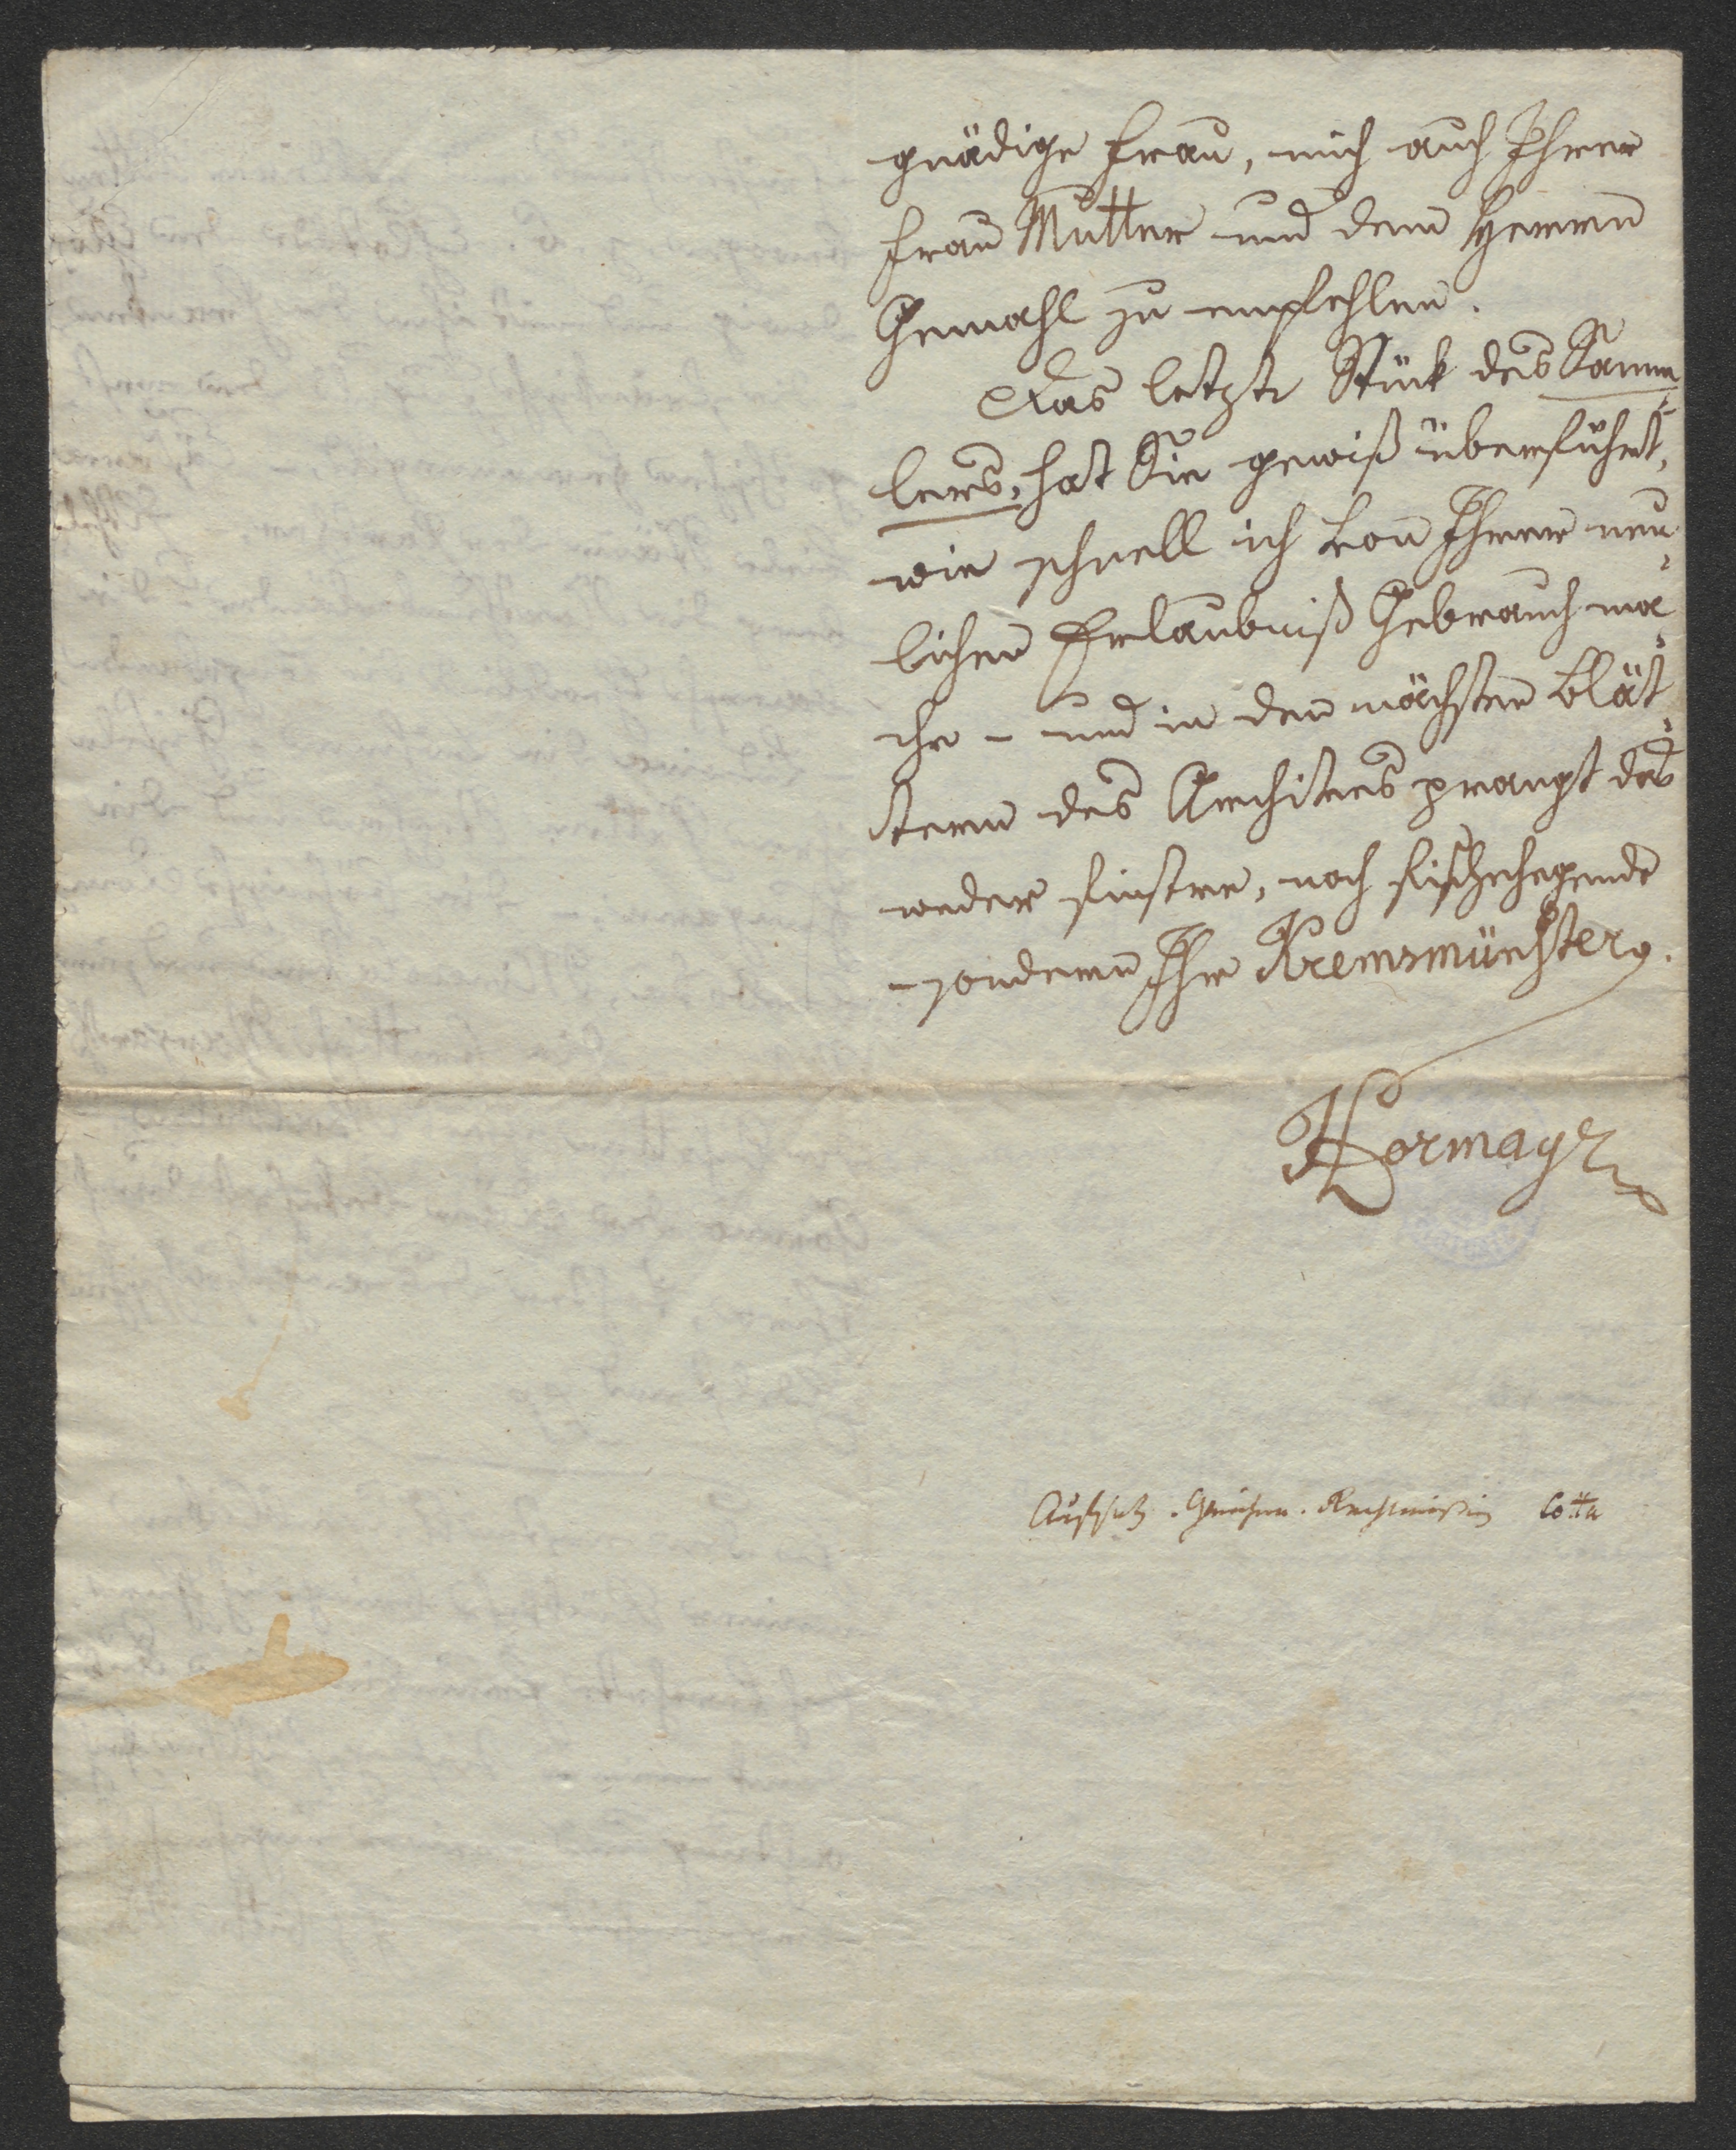 gnädige Frau, mich auch Ihrer
Frau Mutter und dem Herrn
Gemahl zu empfehlen.
Das letzte Stück des Samm¬
lers, hat Sie gewiß überführt,
wie schnell ich von Ihrer neu¬
lichen Erlaubniß Gebrauch ma¬
che – und in den nächsten Blät¬
tern des Archives prangt das
weder finstre, noch fischehegende
– sondern Ihr Kremsmünster.
Hormayr
Aufsatz. Cotta